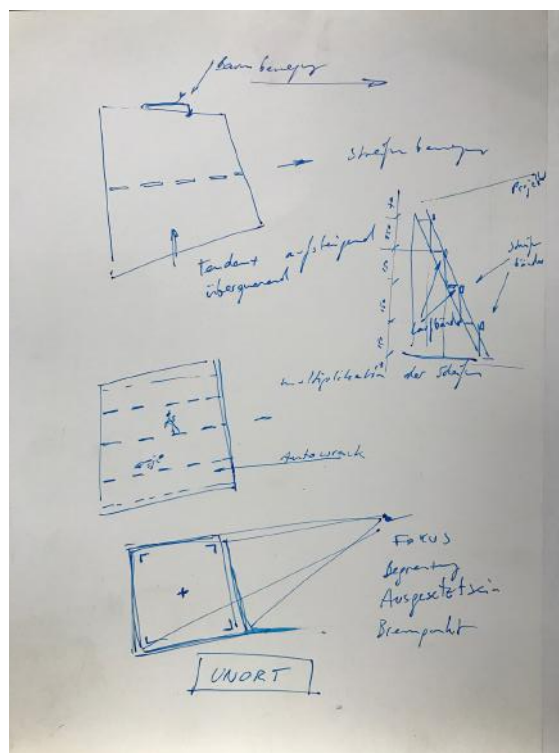 Baumbewegung
Streifenbewegung
Projekt
Tendent aufsteigend
überquerend
Streifen
bänder
Laufbänder
multiplikation der Streifen
Autowrack
FOKUS
Begrenzung
Ausgesetztsein
Brennpunkt
UNORT